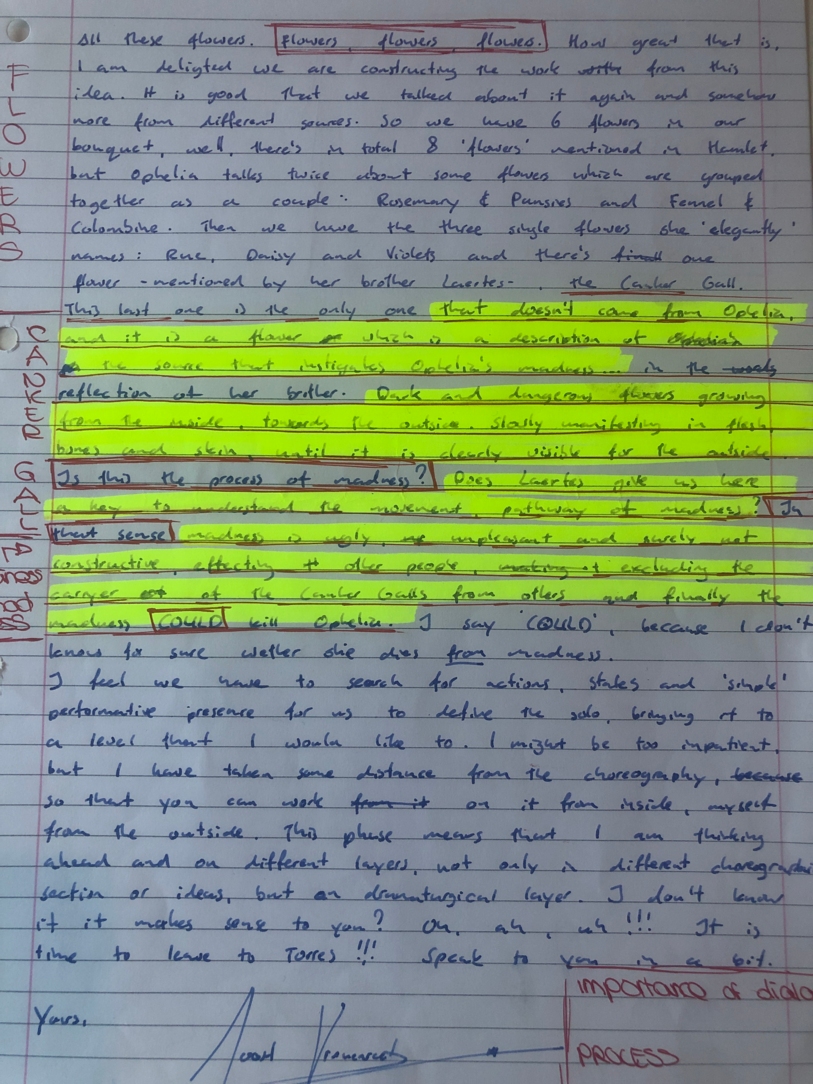 All these flowers. Flowers, flowers, flowers. How great that is.
I am deligted we are constructing the work from this
idea. It is good that we talked about it again and somehow
more from different sources. So we have 6 flowers in our
bouquet, well, there's in total 8 'flowers' mentioned in Hamlet,
but Ophelia talks twice about some flowers which are grouped
together as a couple: Rosemary & Pansies and Fennel &
Colombine. Then we have the three single flowers she 'elegantly'
names: Rue, Daisy and Violets and there's final one
flower -mentioned by her brother Laertes-. the Canker Gall.
This last one is the only one that doesn't come from Ophelia,
and it is a flower which is a description of Ophelia's
the source that instigates Ophelia's madness... in the words
reflection of her brother. Dark and dangerous flowers growing
from the inside, towards the outside. Slowly manifesting in flesh,
bones and skin, until it is clearly visible for the outside.
Is this the process of madness? Does Laertes give us here
a key to understand the movement, pathway of madness? In
that sense madness is ugly, unpleasant and surely not
constructive, effecting other people, making it excluding the
carryer of the Canker Galls from others and finally the
madness COULD kill Ophelia. I say 'COULD', because I don't
know for sure wether she dies from madness.
I feel we have to search for actions, states and 'simple'
performative presence for us to define the solo, bringing it to
a level that I would like to. I might be too inpatient,
but I have taken some distance from the choreography, because
so that you can work from it on it from inside, myself
from the outside. This phase means that I am thinking
ahead and on different layers, not only in different choreographic
section or ideas, but on dramaturgical layer. I don't know
if it makes sense to you? Oh, ah, uh!!! It is
time to leave to Torres!!! Speak to you in a bit.
Yours,
importance of dialo
PROCESS
FLOWERS
CANKER GALL